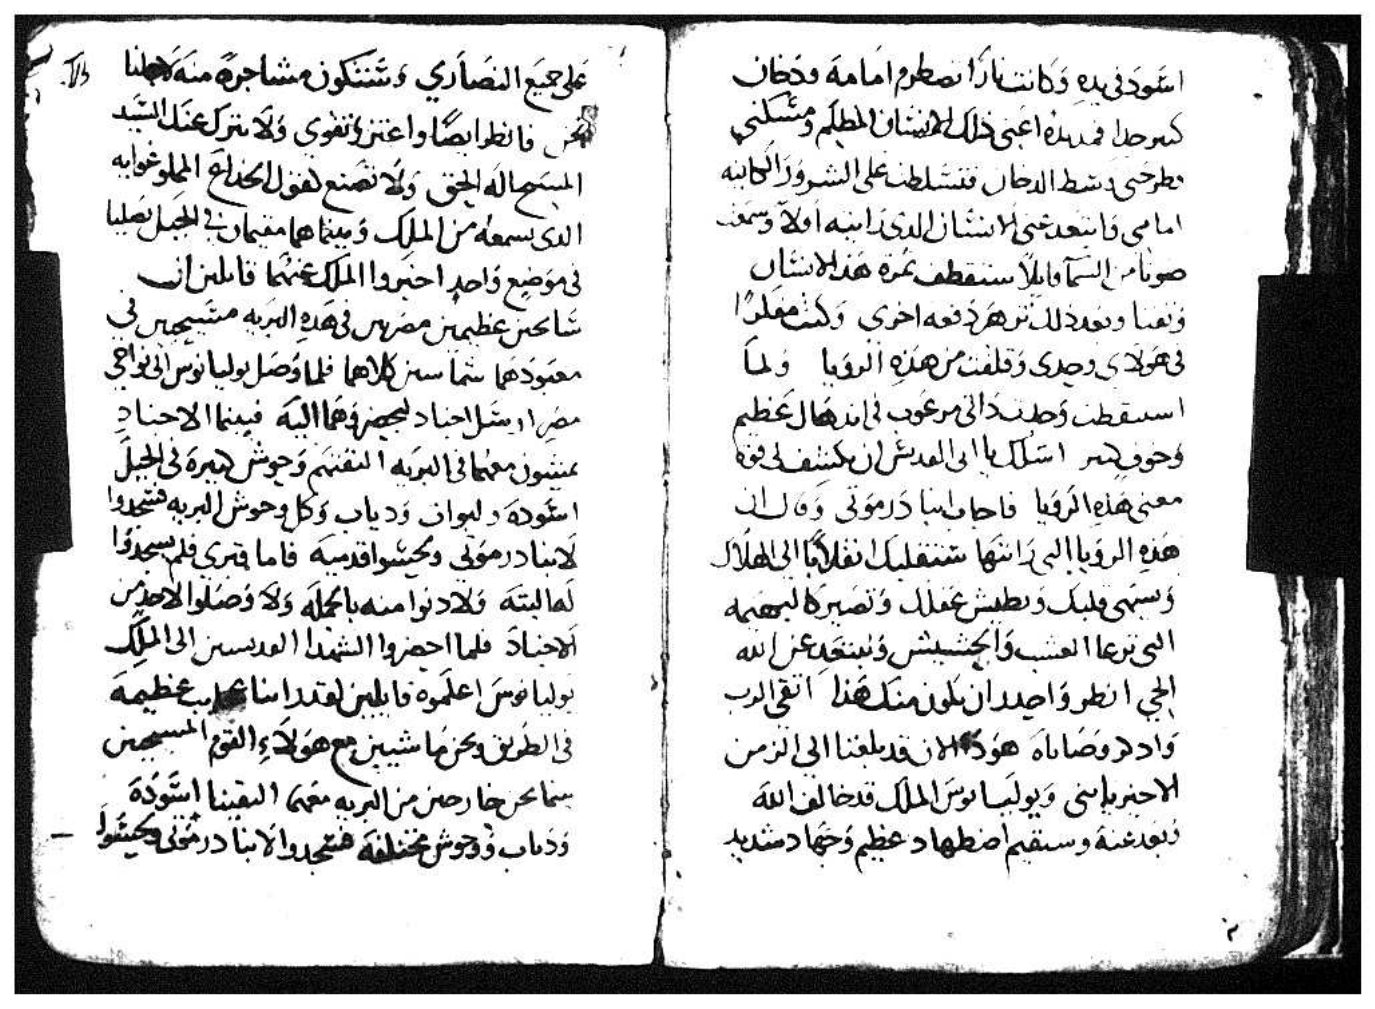 اسود في يده وكانت نارا تضطرم امامه ودخان
كبير جدا فمد يده اعني ذلك الانسان المظلم ومسكني
وطرحني وسط الدخان فتسلطت على الشرور الكاينه
امامي وابتعد عني الانسان الذي رايته اولا وسمعت
صوتا من السما قايلا ستقطف ثمرة هذا الانسان
وتفنا وبعد ذلك تزهر دفعه اخرى وكنت مفكرا
في هولاي وحدي وقلقت من هذه الرويا ولما
استيقظت وجدت ذاتي مرعوب في اندهال عظيم
وخوف كبير اسلك يا ابي القديس ان تكشف لي قوة
معني هذه الرويا فاجاب انبا درموتي وقال ان
هذه الرويا التي راتها ستنقلبك انقلابا الى الهلاك
وبسهي قلبك وبطيش عقلك وتصير كالبهيمه
التي ترعا العشب والحشيش وتبتعد عن الله
الحي انظر واحدر ان يكون منك هذا اتقي الرب
واذكر وصاياه هوذا الان قد بلغنا الى الزمن
الاخير يا ابني ويوليانوس الملك قد خالف الله
وبعد عنه وسيقيم اضطهاد عظيم وجهاد شديد
على جميع النصاري وستكون مشاجره منه لاجلنا
نحن فانظر ايضا واعتز وتقوى ولا تترك عنك السيد
المسيح اله الحق ولا تصنع لقول الخداع المملو غوايه
الذي تسمعه من الملك وبينما هما مقيمان في الجبل يصليا
في موضع واحد اخبروا الملك عنهما قايلين ان
سايحين عظيمين مصريين في هذه البريه مسيحيين في
معبودهما شماسين كلاهما فلما وصل يوليانوس الى نواحي
مصر ارسل اجناد ليحضروهما اليه فبينما الاجناد
يمشون معهما في البريه التقتهم وحوش كثيرة في الجبل
اسوده ولبوات ودياب وكل وحوش البريه فسجدوا
لانبا درموتي ولحسوا قدميه فاما قبري فلم يسجدوا
له البته ولا دنوا منه بالجمله ولا وصلوا لاحد من
الاجناد فلما احضروا الشهدا القديسين الى الملك
يوليانوس اعلموه قايلين لقد راينا عجايب عظيمه
في الطريق ونحن ماشيين مع هولاء القوم المسيحيين
بينما نحن خارجين من البريه معهما التقينا اسودة
ودياب ووحوش مختلفه فسجدوا لانبا درموتي ولحسوا